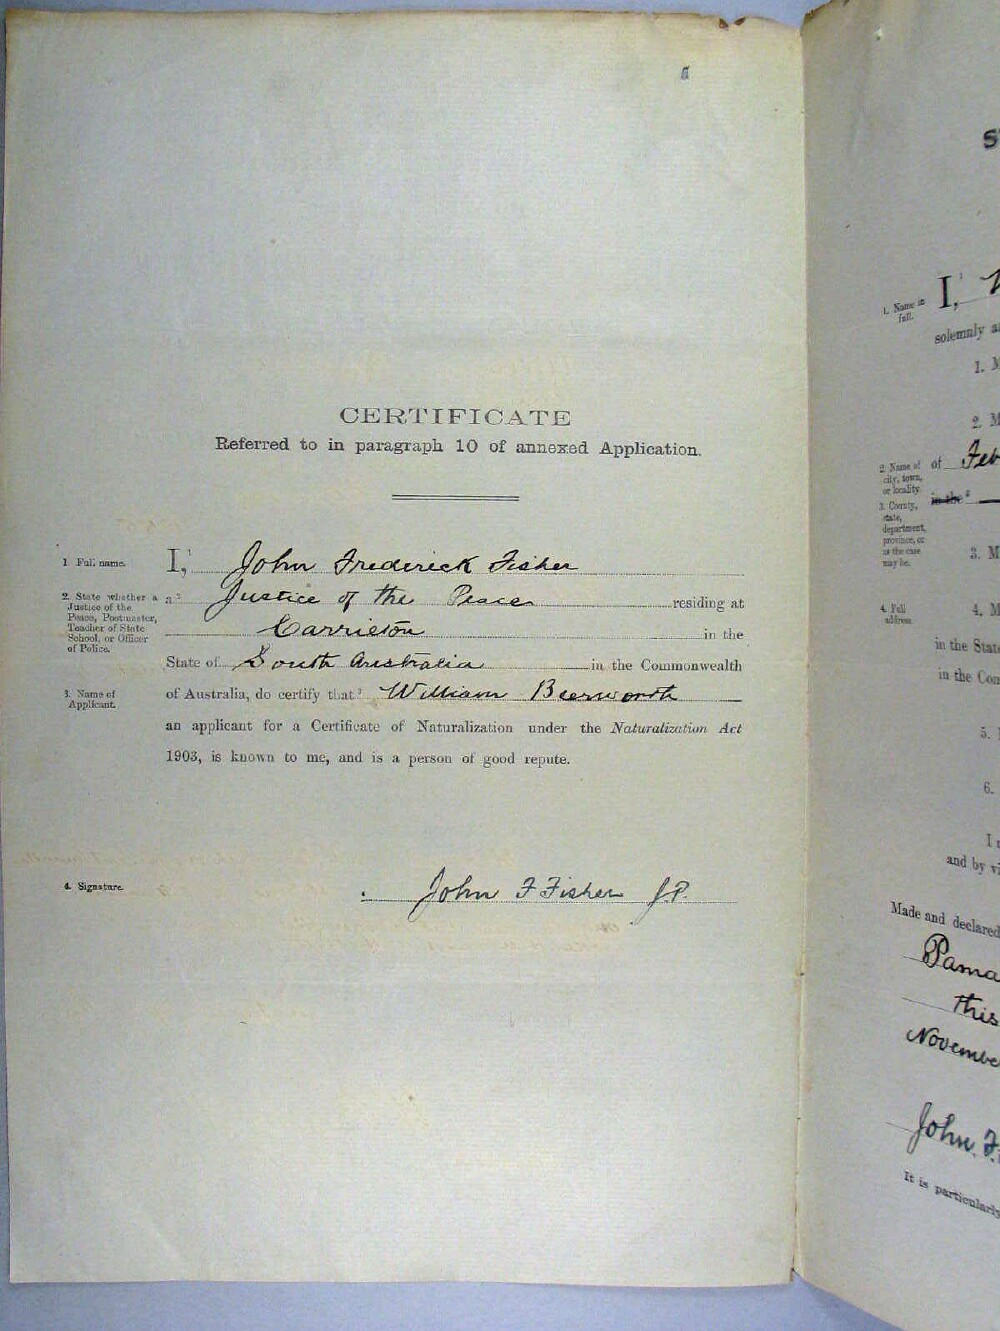 CERTIFICATE
Referred to in paragraph 10 of annexed Application.
1 Full name.
I,¹ John Frederick Fisher
2. State whether a
Justice of the
Peace, Postmaster,
Teacher of State
School, or Officer
of Police.
a² Justice of the Peace residing at
Carrieton in the
State of South Australia in the Commonwealth
3. Name of
Applicant.
of Australia, do certify that³ William Beerworth
an applicant for a Certificate of Naturalization under the Naturalization Act
1903, is known to me, and is a person of good repute.
4. Signature.
John F Fisher J.P.
S
1. Name in
full.
I,
solemnly a
1. M
2. M
2. Name of
city, town,
or locality.
of Feb
3. County,
state,
department,
province, or
as the case
may be.
in the³
3. M
4. Full
address.
4. M
in the State
in the Com
5.
6.
I
and by vi
Made and declared
Pama
this
November
John. F.
It is particularly